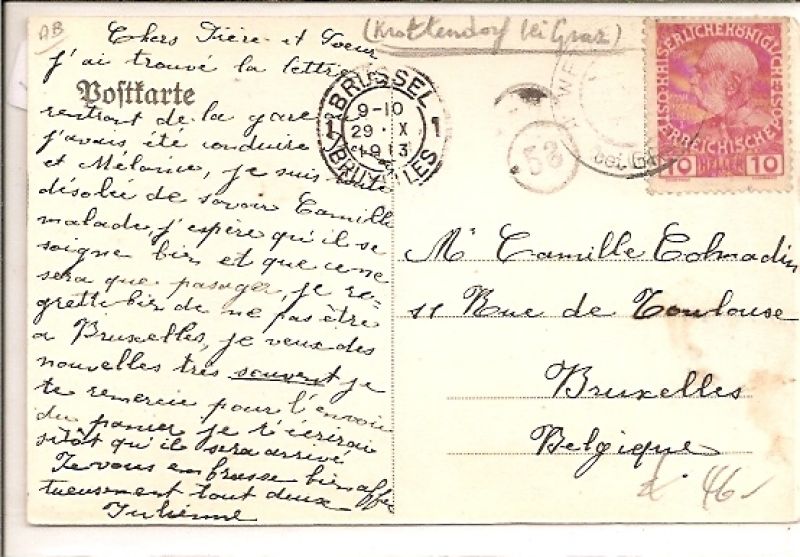 AB
(Krottendorf bei Graz)
Chers Frère et Soeur
j'ai trouvé la lettre
Postkarte
rentrant de la gare où
j'avais, été conduire
et Mélanie, je suis toute
désolée de savoir Camille
malade, j'espère qu'il se
soigne bien et que ce ne
sera que passager, je re-
grette bien de ne pas être
a Bruxelles, je veux des
nouvelles très souvent je
te remercie pour l'envoi
du panier je t'écrirai
sitôt qu'il sera arrivé
Je vous embrasse bien affec
tueusement tout deux
Julienne
BRUSSEL
9-10
1 29 X 1
1913
BRUXELLES
53
KAISERLICHE KÖNIGLICHE
ÖSTERREICHISCHE
10 HELLER 10
Mr Camille
11 Rue de Toulouse
Bruxelles
Belgique
46-